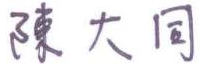 陳大同